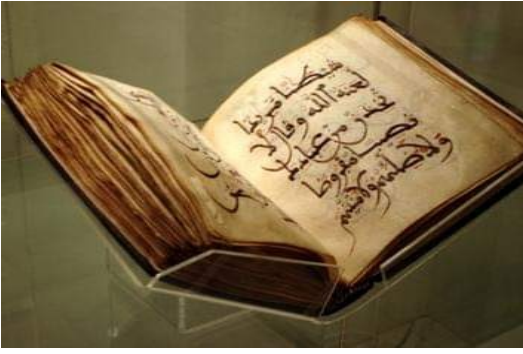 شيطنا مريدا
لعنه الله وقال لا
تخذن من عبادك
نصيبا مفروضا
ولاضلنهم ولامنينهم